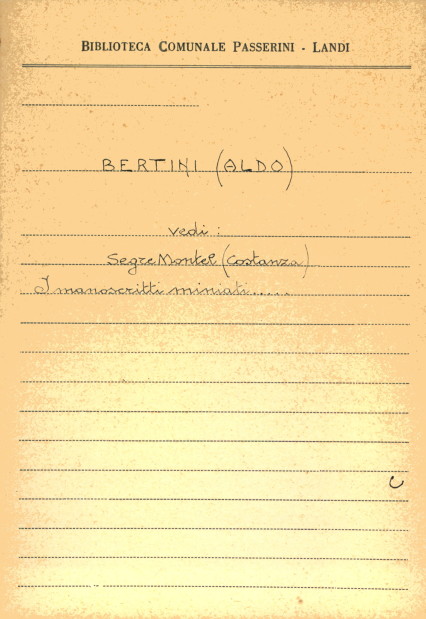 BIBLIOTECA COMUNALE PASSERINI - LANDI
BERTINI (ALDO)
vedi:
Segre Montel (Costanza)
I manoscritti miniati.....
C